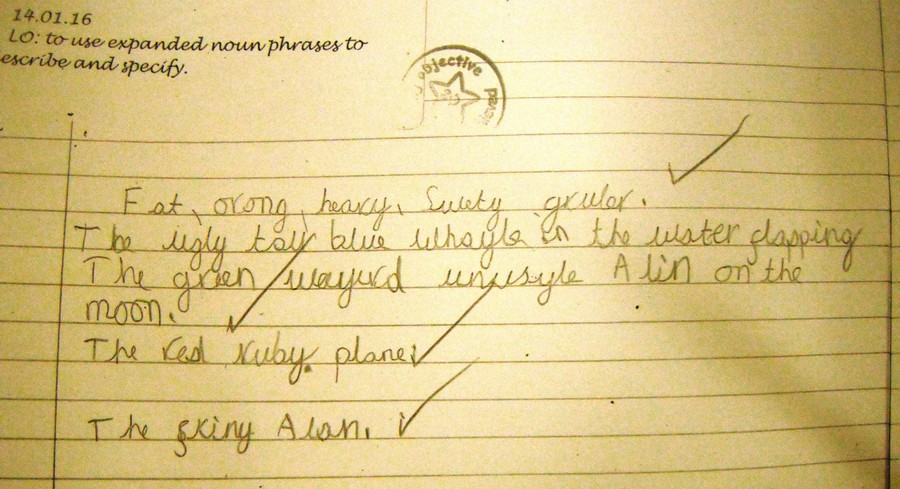 14.01.16
LO: to use expanded noun phrases to
escribe and specify.
objective
Fat, orong, heavy, Swety gruler.
The ugly toy blue Whayle in the water flapping
The green wayurd unusyle Alin on the
moon.
The Red Ruby plane.
The skiny Alan.